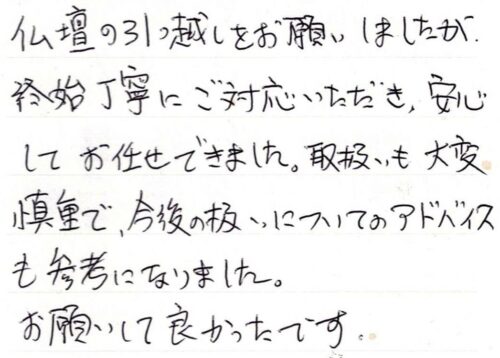 仏壇の引っ越しをお願いしましたが、
終始丁寧にご対応いただき、安心
してお任せできました。取扱いも大変
慎重で、今後の扱いについてのアドバイス
も参考になりました。
お願いして良かったです。